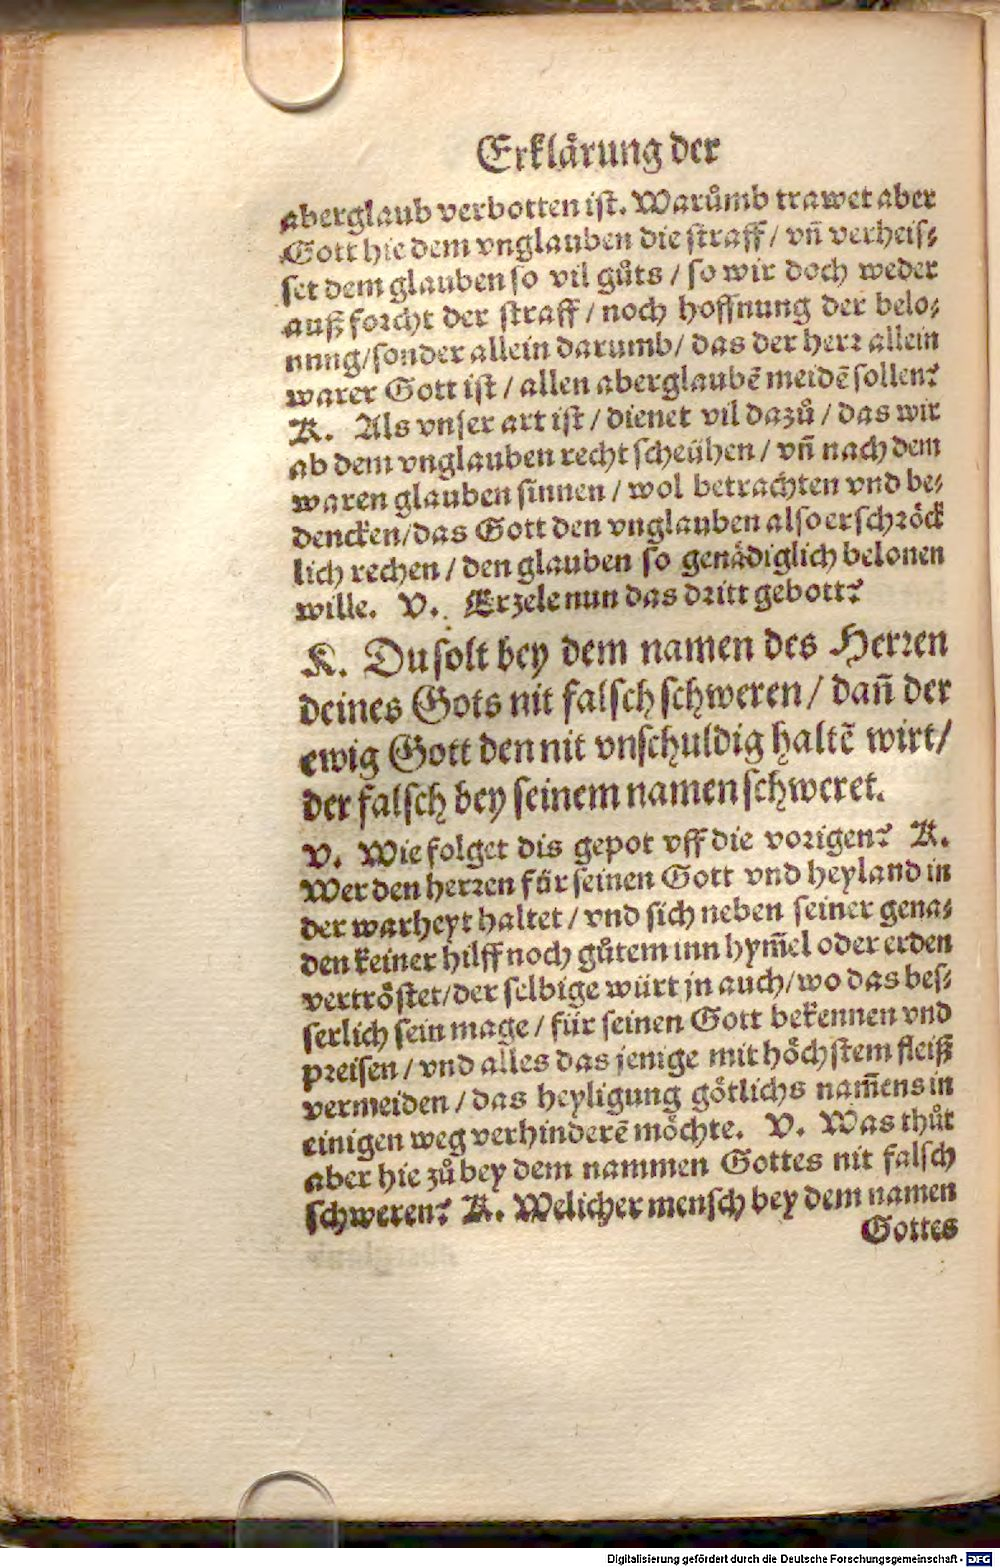 Erklärung der
aberglaub verbotten ist. Warůmb trawet aber
Gott hie dem vnglauben die straff / vñ verheis⸗
set dem glauben so vil gůts / so wir doch weder
auß forcht der straff / noch hoffnung der belo⸗
nung/sonder allein darumb/ das der herr allein
warer Gott ist / allen aberglaubẽ meidẽ sollen?
K. Als vnser art ist / dienet vil dazů / das wir
ab dem vnglauben recht scheühen / vñ nach dem
waren glauben sinnen / wol betrachten vnd be⸗
dencken/das Gott den vnglauben also erschröck
lich rechen / den glauben so genädiglich belonen
wille. V. Erzele nun das dritt gebott?
K. Du solt bey dem namen des Herren
deines Gots nit falsch schweren / dañ der
ewig Gott den nit vnschuldig haltẽ wirt/
der falsch bey seinem namen schweret.
V. Wie folget dis gepot vff die vorigen? K.
Wer den herren für seinen Gott vnd heyland in
der warheyt haltet / vnd sich neben seiner gena⸗
den keiner hilff noch gůtem inn hym̃el oder erden
vertröstet/der selbige würt jn auch/wo das bes⸗
serlich sein mage / für seinen Gott bekennen vnd
preisen / vnd alles das jenige mit höchstem fleiß
vermeiden / das heyligung götlichs nam̃ens in
einigen weg verhinderẽ möchte. V. Was thůt
aber hie zů bey dem nammen Gottes nit falsch
schweren? K. Welicher mensch bey dem namen
Gottes
Digitalisierung gefördert durch die Deutsche Forschungsgemeinschaft - DFG